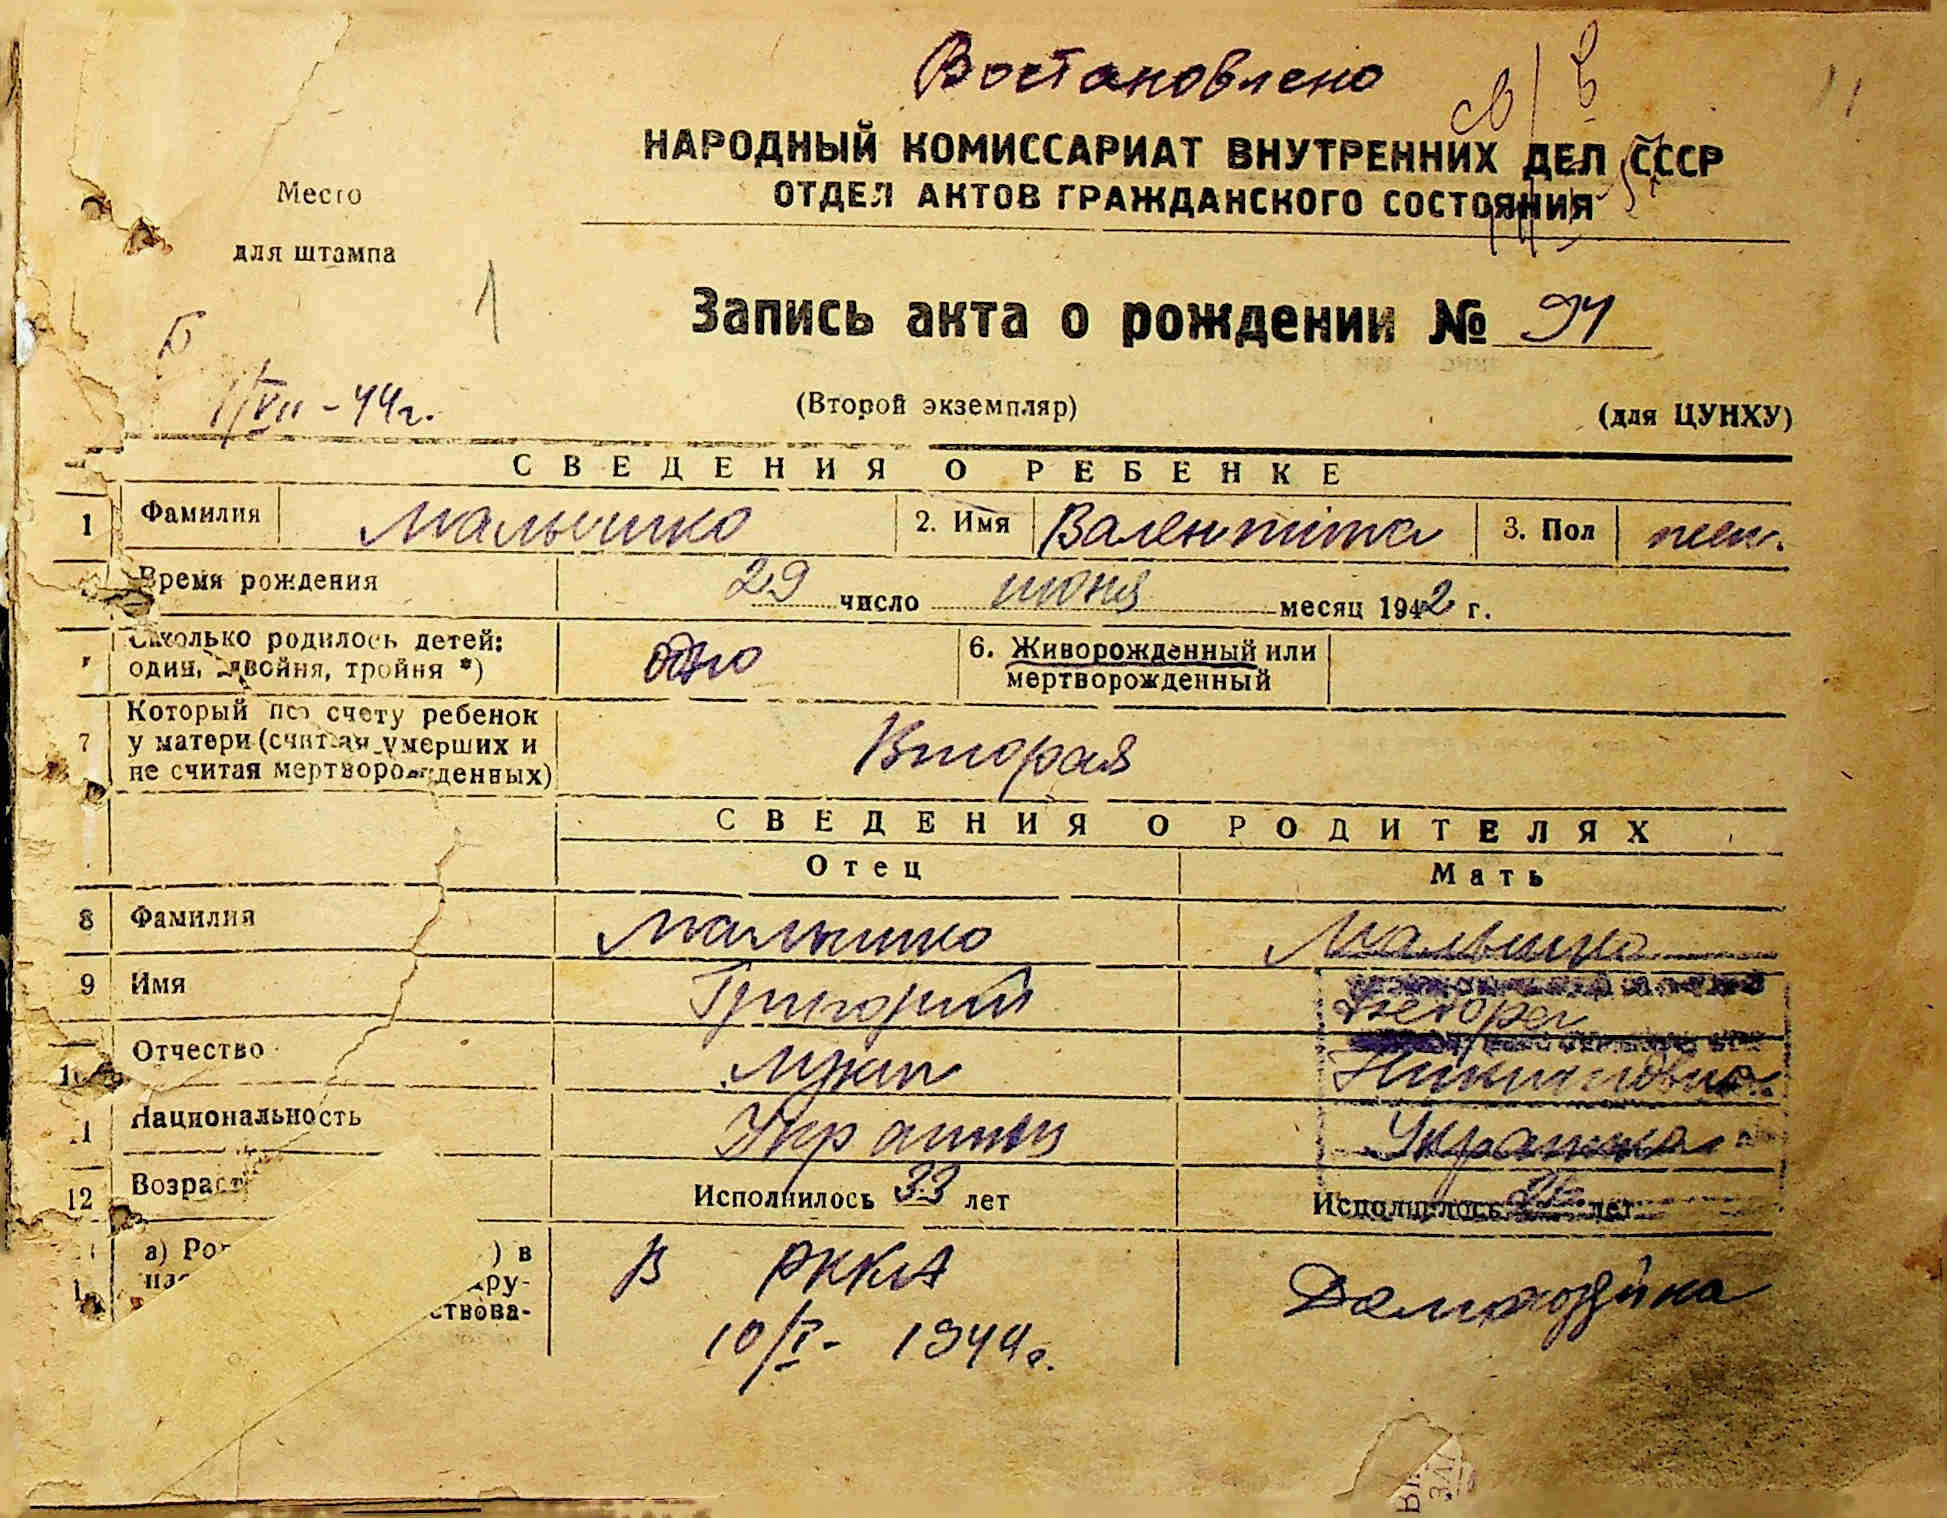 Востановлено
НАРОДНЫЙ КОМИССАРИАТ ВНУТРЕННИХ ДЕЛ СССР
ОТДЕЛ АКТОВ ГРАЖДАНСКОГО СОСТОЯНИЯ
Место
для штампа
1
Запись акта о рождении № 94
1/VII - 44 г.
(Второй экземпляр)
(для ЦУНХУ)
СВЕДЕНИЯ О РЕБЕНКЕ
1 Фамилия Малышко 2. Имя Валентина 3. Пол жен.
Время рождения 29 число июня месяц 1942 г.
Сколько родилось детей: один, двойня, тройня *) одно 6. Живорожденный или мертворожденный
7 Который по счету ребенок у матери (считая умерших и не считая мертворожденных) Вторая
СВЕДЕНИЯ О РОДИТЕЛЯХ
Отец Мать
8 Фамилия Малышко Малышко
9 Имя Григорий
10 Отчество
11 Национальность Украинец Украинка
12 Возраст Исполнилось 33 лет Исполнилось лет
а) ) в
ру-
ствова-
В РККА
10/I - 1944 г.
Домохозяйка